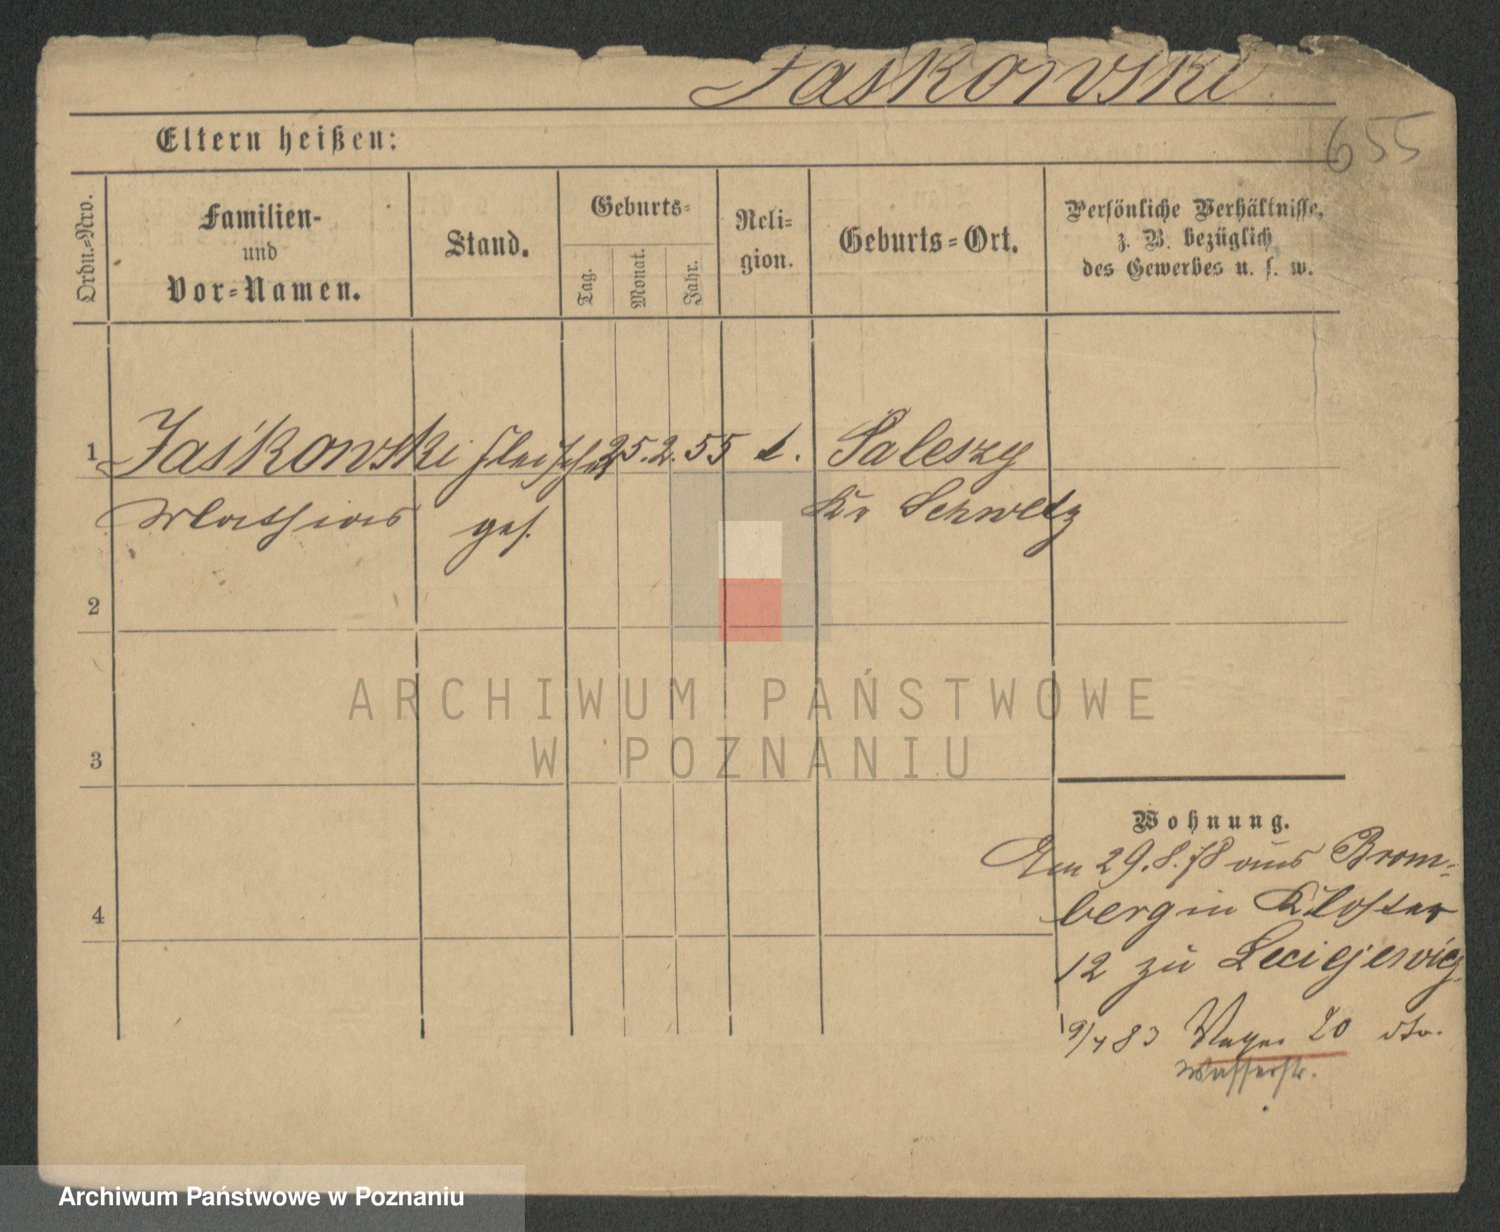 Jaśkowski
655
Eltern heißen:
Ordn.=Nro.
Familien-
und
Vor=Namen.
Stand.
Geburts=
Tag.
Monat.
Jahr.
Reli-
gion.
Geburts=Ort.
Persönliche Verhältnisse,
z. B. bezüglich
des Gewerbes u. s. w.
1 Jaśkowski Fleischer 25. 2. 55 k. Saleszy
Mathias ges. Kr Schwetz
2
3
4
Wohnung.
Am 29. 8. 78 aus Brom-
berg in Kloster
12 zu Leciejewicz
9/4 83 20 dto.
Wasserstr.
ARCHIWUM PAŃSTWOWE
W POZNANIU
Archiwum Państwowe w Poznaniu